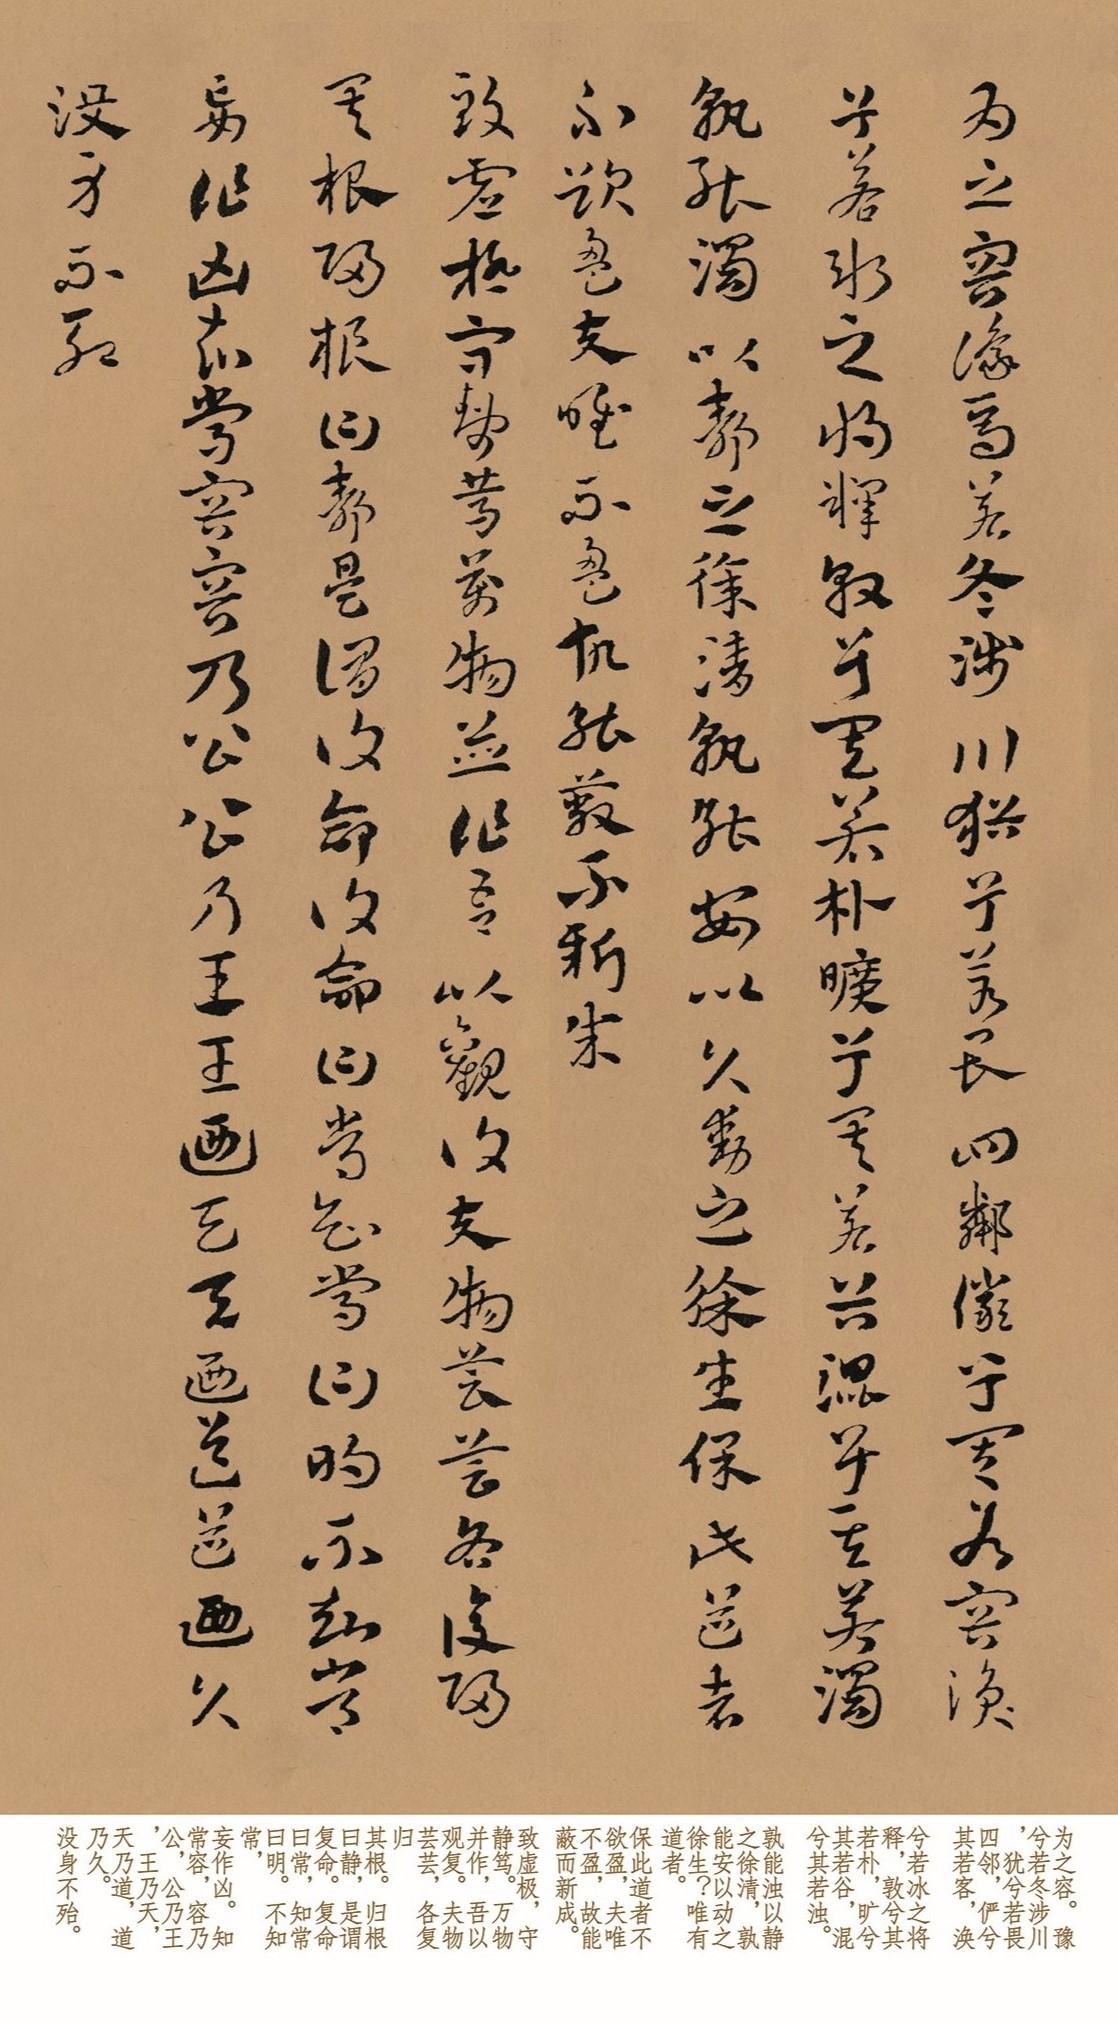 為之容豫焉若冬涉川猶兮若畏四鄰儼兮其若容渙
兮若冰之將釋敦兮其若朴曠兮其若谷混兮其若濁
孰能濁以靜之徐清孰能安以久動之徐生保此道者
不欲盈夫唯不盈故能蔽不新成
致虛極守靜篤萬物並作吾以觀復夫物芸芸各復歸
其根歸根曰靜是謂復命復命曰常知常曰明不知常
妄作凶知常容容乃公公乃王王廼天天廼道道廼久
沒身不殆
为之容。豫
兮若冬涉川
，犹兮若畏
四邻，俨兮
其若客，涣
兮若冰之将
释，敦兮其
若朴，旷兮
其若谷，混
兮其若浊。
孰能浊以静
之徐清，孰
能安以动之
徐生？唯有
道者。
保此道者不
欲盈，夫唯
不盈，故能
蔽而新成。
致虚极，守
静笃。万物
并作，吾以
观复。夫物
芸芸，各复
归
其根。归根
曰静，是谓
复命。复命
曰常，知常
曰明。不知
常，
妄作凶。知
常容，容乃
公，公乃王
，王乃天，
天乃道，道
乃久。
没身不殆。